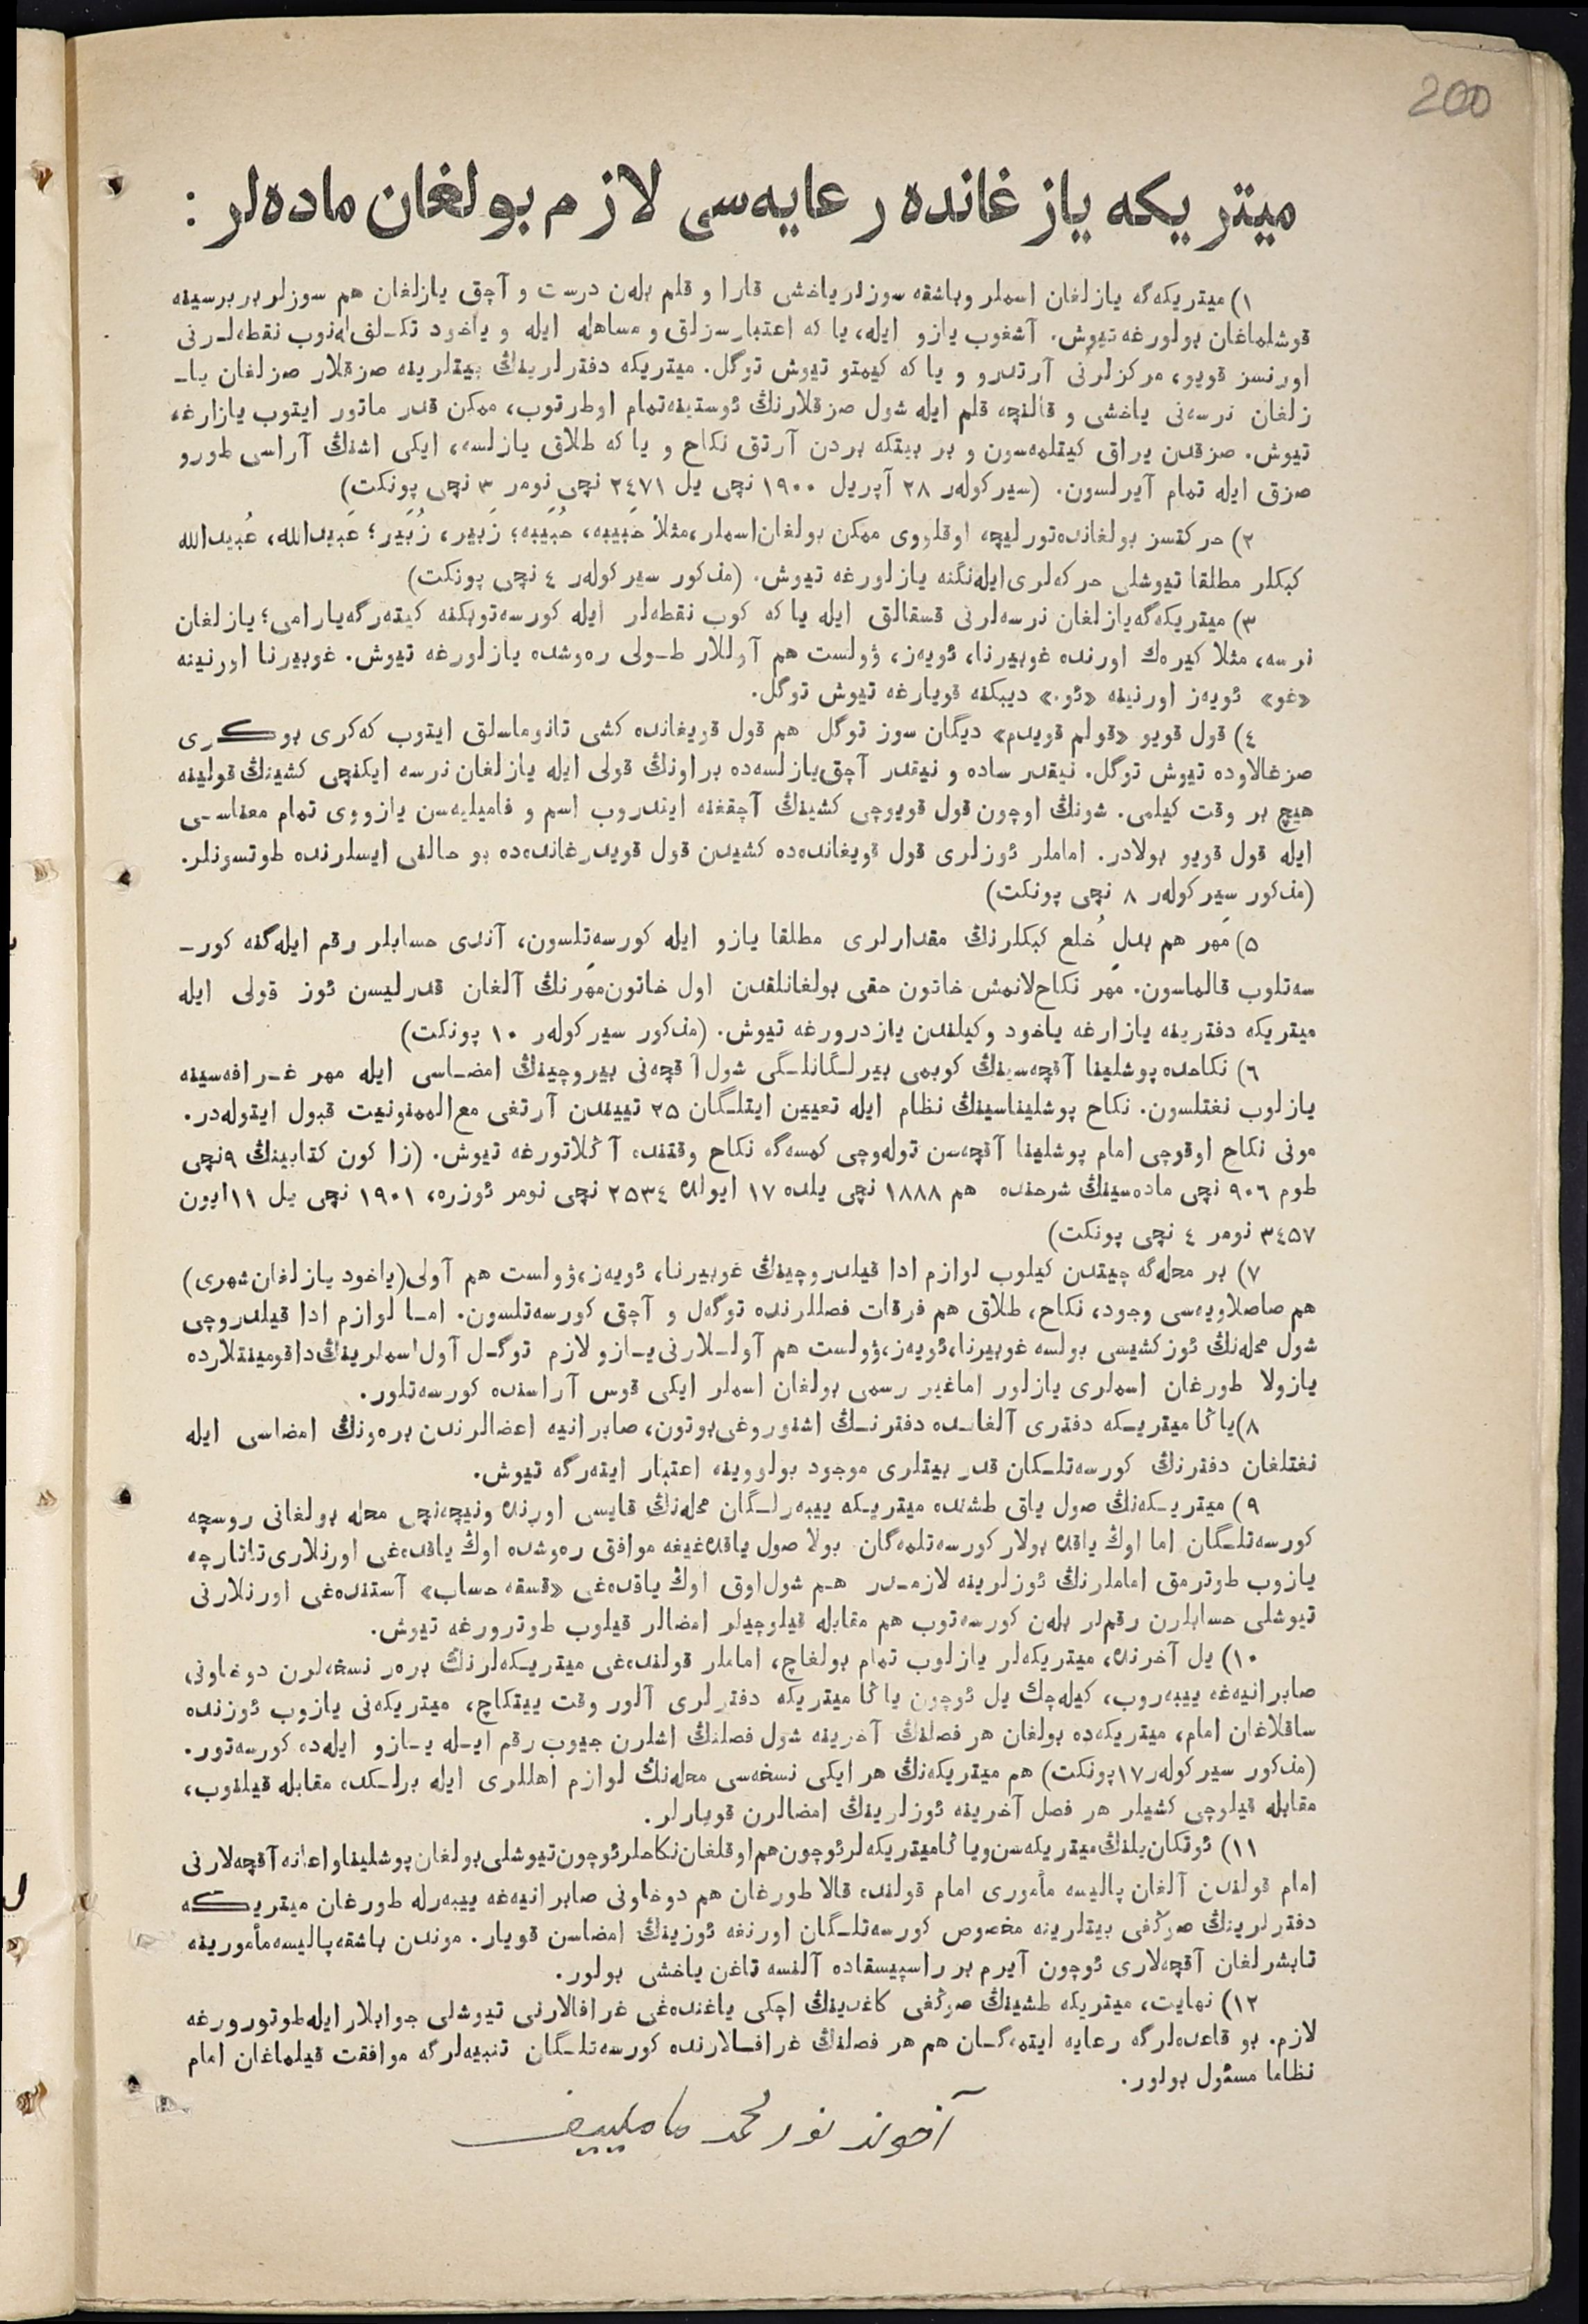 200
ميتريكه يازغانده رعايه‌سى لازم بولغان ماده‌لر :
١) ميتريكه‌گه يازلغان اسملر وباشقه سوزلرياخشى قارا و قلم بله‌ن درست و آچق يازلغان هم سوزلربربرسينه
قوشلماغان بولورغه تيوش. آشغوب يازو ايله، يا كه اعتبارسزلق و مساهله ايله و ياخود تكـلف‌له‌نوب نقطه‌لـرنى
اورنسز قويو، مركزلرنى آرتدرو و يا كه كيمتو تيوش توگل. ميتريكه دفترلرينڭ بيتلرينه صزقلار صزلغان ياـ
زلغان نرسه‌نى ياخشى و قالنچه قلم ايله شول صزقلارنڭ ئوستينه‌تمام اوطرتوب، ممكن قدر ماتور ايتوب يازارغه
تيوش. صزقدن يراق كيتلمه‌سون و بر بيتكه بردن آرتق نكاح و يا كه طلاق يازلسه، ايكى اشنڭ آراسى طورو
صزق ايله تمام آيرلسون. (سيركولەر ٢٨ آپريل ١٩٠٠ نچى يل ٢٤٧١ نچى نومر ٣ نچى پونكت)
٢) حركتسز بولغانده‌تورليچه اوقلووى ممكن بولغان‌اسملر،مثلا حَبيبه، حُبَيبه؛ زَبير، زُبَير؛ عَبيدالله، عُبيدالله
كبكلر مطلقا تيوشلى حركه‌لرى‌ايله‌نگنه يازلورغه تيوش. (مذكور سيركولەر ٤ نچى پونكت)
٣) ميتريكه‌گه‌يازلغان نرسه‌لرنى قسقالق ايله يا كه كوب نقطه‌لر ايله كورسه‌توبكنه كيته‌رگه‌يارامى؛ يازلغان
نرسه، مثلا كيره‌ك اورنده غوبيرنا، ئويه‌ز، ۋولست هم آوللار طـولى ره‌وشده يازلورغه تيوش. غوبيرنا اورنينه
«غو» ئويه‌ز اورنينه «ئو.» ديبكنه قويارغه تيوش توگل.
٤) قول قويو «قولم قويدم» ديگان سوز توگل هم قول قويغانده كشى تانوماسلق ايتوب كه‌كرى بوكرى
صزغالاوده تيوش توگل. نيقدر ساده و نيقدر آچق‌يازلسه‌ده براونڭ قولى ايله يازلغان نرسه ايكنچى كشينڭ قولينه
هيچ بر وقت كيلمى. شونڭ اوچون قول قويوچى كشينڭ آچقغنه ايندروب اسم و فاميليه‌سن يازووى تمام معناسـى
ايله قول قويو بولادر. اماملر ئوزلرى قول قويغانده‌ده كشيدن قول قويدرغانده‌ده بو حالنى ايسلرنده طوتسونلر.
(مذكور سيركولەر ٨ نچى پونكت)
٥) مَهر هم بدلِ خُلع كبكلرنڭ مقدارلرى مطلقا يازو ايله كورسه‌تلسون، آندى حسابلر رقم ايله‌گنه كورـ
سه‌تلوب قالماسون. مَهر نكاح‌لانمش خاتون حقى بولغانلقدن اول خاتون‌مَهرنڭ آلغان قدرليسن ئوز قولى ايله
ميتريكه دفترينه يازارغه ياخود وكيلندن يازدرورغه تيوش. (مذكور سيركولەر ١٠ پونكت)
٦) نكاحده پوشلينا آقچه‌سينڭ كوبمى بيرلـگانلـگى شول آقچه‌نى بيروچينڭ امضـاسى ايله مهر غـرافه‌سينه
يازلوب نغتلسون. نكاح پوشليناسينڭ نظام ايله تعيين ايتلـگان ٢٥ تييندن آرتغى مع‌الممنونيت قبول ايتوله‌در.
مونى نكاح اوقوچى امام پوشلينا آقچه‌سن توله‌وچى كمسه‌گه نكاح وقتنده آڭلاتورغه تيوش. (زاكون كتابينڭ ٩نچى
طوم ٩٠٦ نچى ماده‌سينڭ شرحنده هم ١٨٨٨ نچى يلده ١٧ ايولده ٢٥٣٤ نچى نومر ئوزره، ١٩٠١ نچى يل ١١ايون
٣٤٥٧ نومر ٤ نچى پونكت)
٧) بر محله‌گه چيتدن كيلوب لوازم ادا قيلدروچينڭ غوبيرنا، ئويه‌ز،ۋولست هم آولى(ياخود يازلغان‌شهرى)
هم صاصلاويه‌سى وجود، نكاح، طلاق هم فرقات فصللرنده توگه‌ل و آچق كورسه‌تلسون. امـا لوازم ادا قيلدروچى
شول محله‌نڭ ئوزكشيسى بولسه غوبيرنا،ئويه‌ز،ۋولست هم آولـلارنى‌يـازو لازم توگـل آول‌اسملرينڭ‌داقومينتلارده
يازولا طورغان اسملرى يازلور اماغير رسمى بولغان اسملر ايكى قوس آراسنده كورسه‌تلور.
٨)ياڭا ميتريـكه دفترى آلغانـده دفترنـڭ اشنوروغى‌بوتون، صابرانيه اعضالرندن بره‌ونڭ امضاسى ايله
نغتلغان دفترنڭ كورسه‌تلـكان قدر بيتلرى موجود بولووينه اعتبار ايته‌رگه تيوش.
٩) ميتريـكه‌نڭ صول ياق طشنده ميتريـكه ييبه‌رلـگان محله‌نڭ قايسى اورنده ونيچه‌نچى محله بولغانى روسچه
كورسه‌تلـگان اما اوڭ ياقده بولار كورسه‌تلمه‌گان. بولا صول ياقده‌غيغه موافق ره‌وشده اوڭ ياقده‌غى اورنلارى‌تاتارچه
يازوب طوترمق اماملرنڭ ئوزلرينه لازمـدر هـم شول‌اوق اوڭ ياقده‌غى «قسقه حساب» آستنده‌غى اورنلارنى
تيوشلى حسابلرن رقم‌لر بله‌ن كورسه‌توب هم مقابله قيلوچيلر امضالر قيلوب طوترورغه تيوش.
١٠) يل آخرنده، ميتريكه‌لر يازلوب تمام بولغاچ، اماملر قولنده‌غى ميتريـكه‌لرنڭ بره‌ر نسخه‌لرن دوخاونى
صابرانيه‌غه ييبه‌روب، كيله‌چك يل ئوچون ياڭا ميتريكه دفترلرى آلور وقت ييتكاچ، ميتريكه‌نى يازوب ئوزنده
ساقلاغان امام، ميتريكه‌ده بولغان هر فصلنڭ آخرينه شول فصلنڭ اشلرن جيوب رقم ايـله يـازو ايله‌ده كورسه‌تور.
(مذكور سيركولەر١٧پونكت) هم ميتريكه‌نڭ هر ايكى نسخه‌سى محله‌نڭ لوازم اهللرى ايله برلـكده مقابله قيلنوب،
مقابله قيلوچى كشيلر هر فصل آخرينه ئوزلرينڭ امضالرن قويارلر.
١١) ئوتكان‌يلنڭ‌ميتريكه‌سن‌وياڭاميتريكه‌لرئوچون‌هم‌اوقلغان‌نكاحلرئوچون‌تيوشلى‌بولغان‌پوشليناواعانه‌آقچه‌لارنى
امام قولندن آلغان پاليسه مأمورى امام قولنده قالا طورغان هم دوخاونى صابرانيه‌غه ييبه‌رله طورغان ميتريكه
دفترلرينڭ صوڭغى بيتلرينه مخصوص كورسه‌تلـگان اورنغه ئوزينڭ امضاسن قويار. موندن باشقه‌پاليسه‌مأمورينه
تابشرلغان آقچه‌لارى ئوچون آيرم بر راسپيسقاده آلنسه تاغن ياخشى بولور.
١٢) نهايت، ميتريكه طشينڭ صوڭغى كاغدينڭ اچكى ياغنده‌غى غرافالارنى تيوشلى جوابلارايله‌طوتورورغه
لازم. بو قاعده‌لرگه رعايه ايتمه‌گـان هم هر فصلنڭ غرافـالارنده كورسه‌تلـگان تنبيه‌لرگه موافقت قيلماغان امام
نظاما مسئول بولور.
آخوند نورمحمد ماملييف